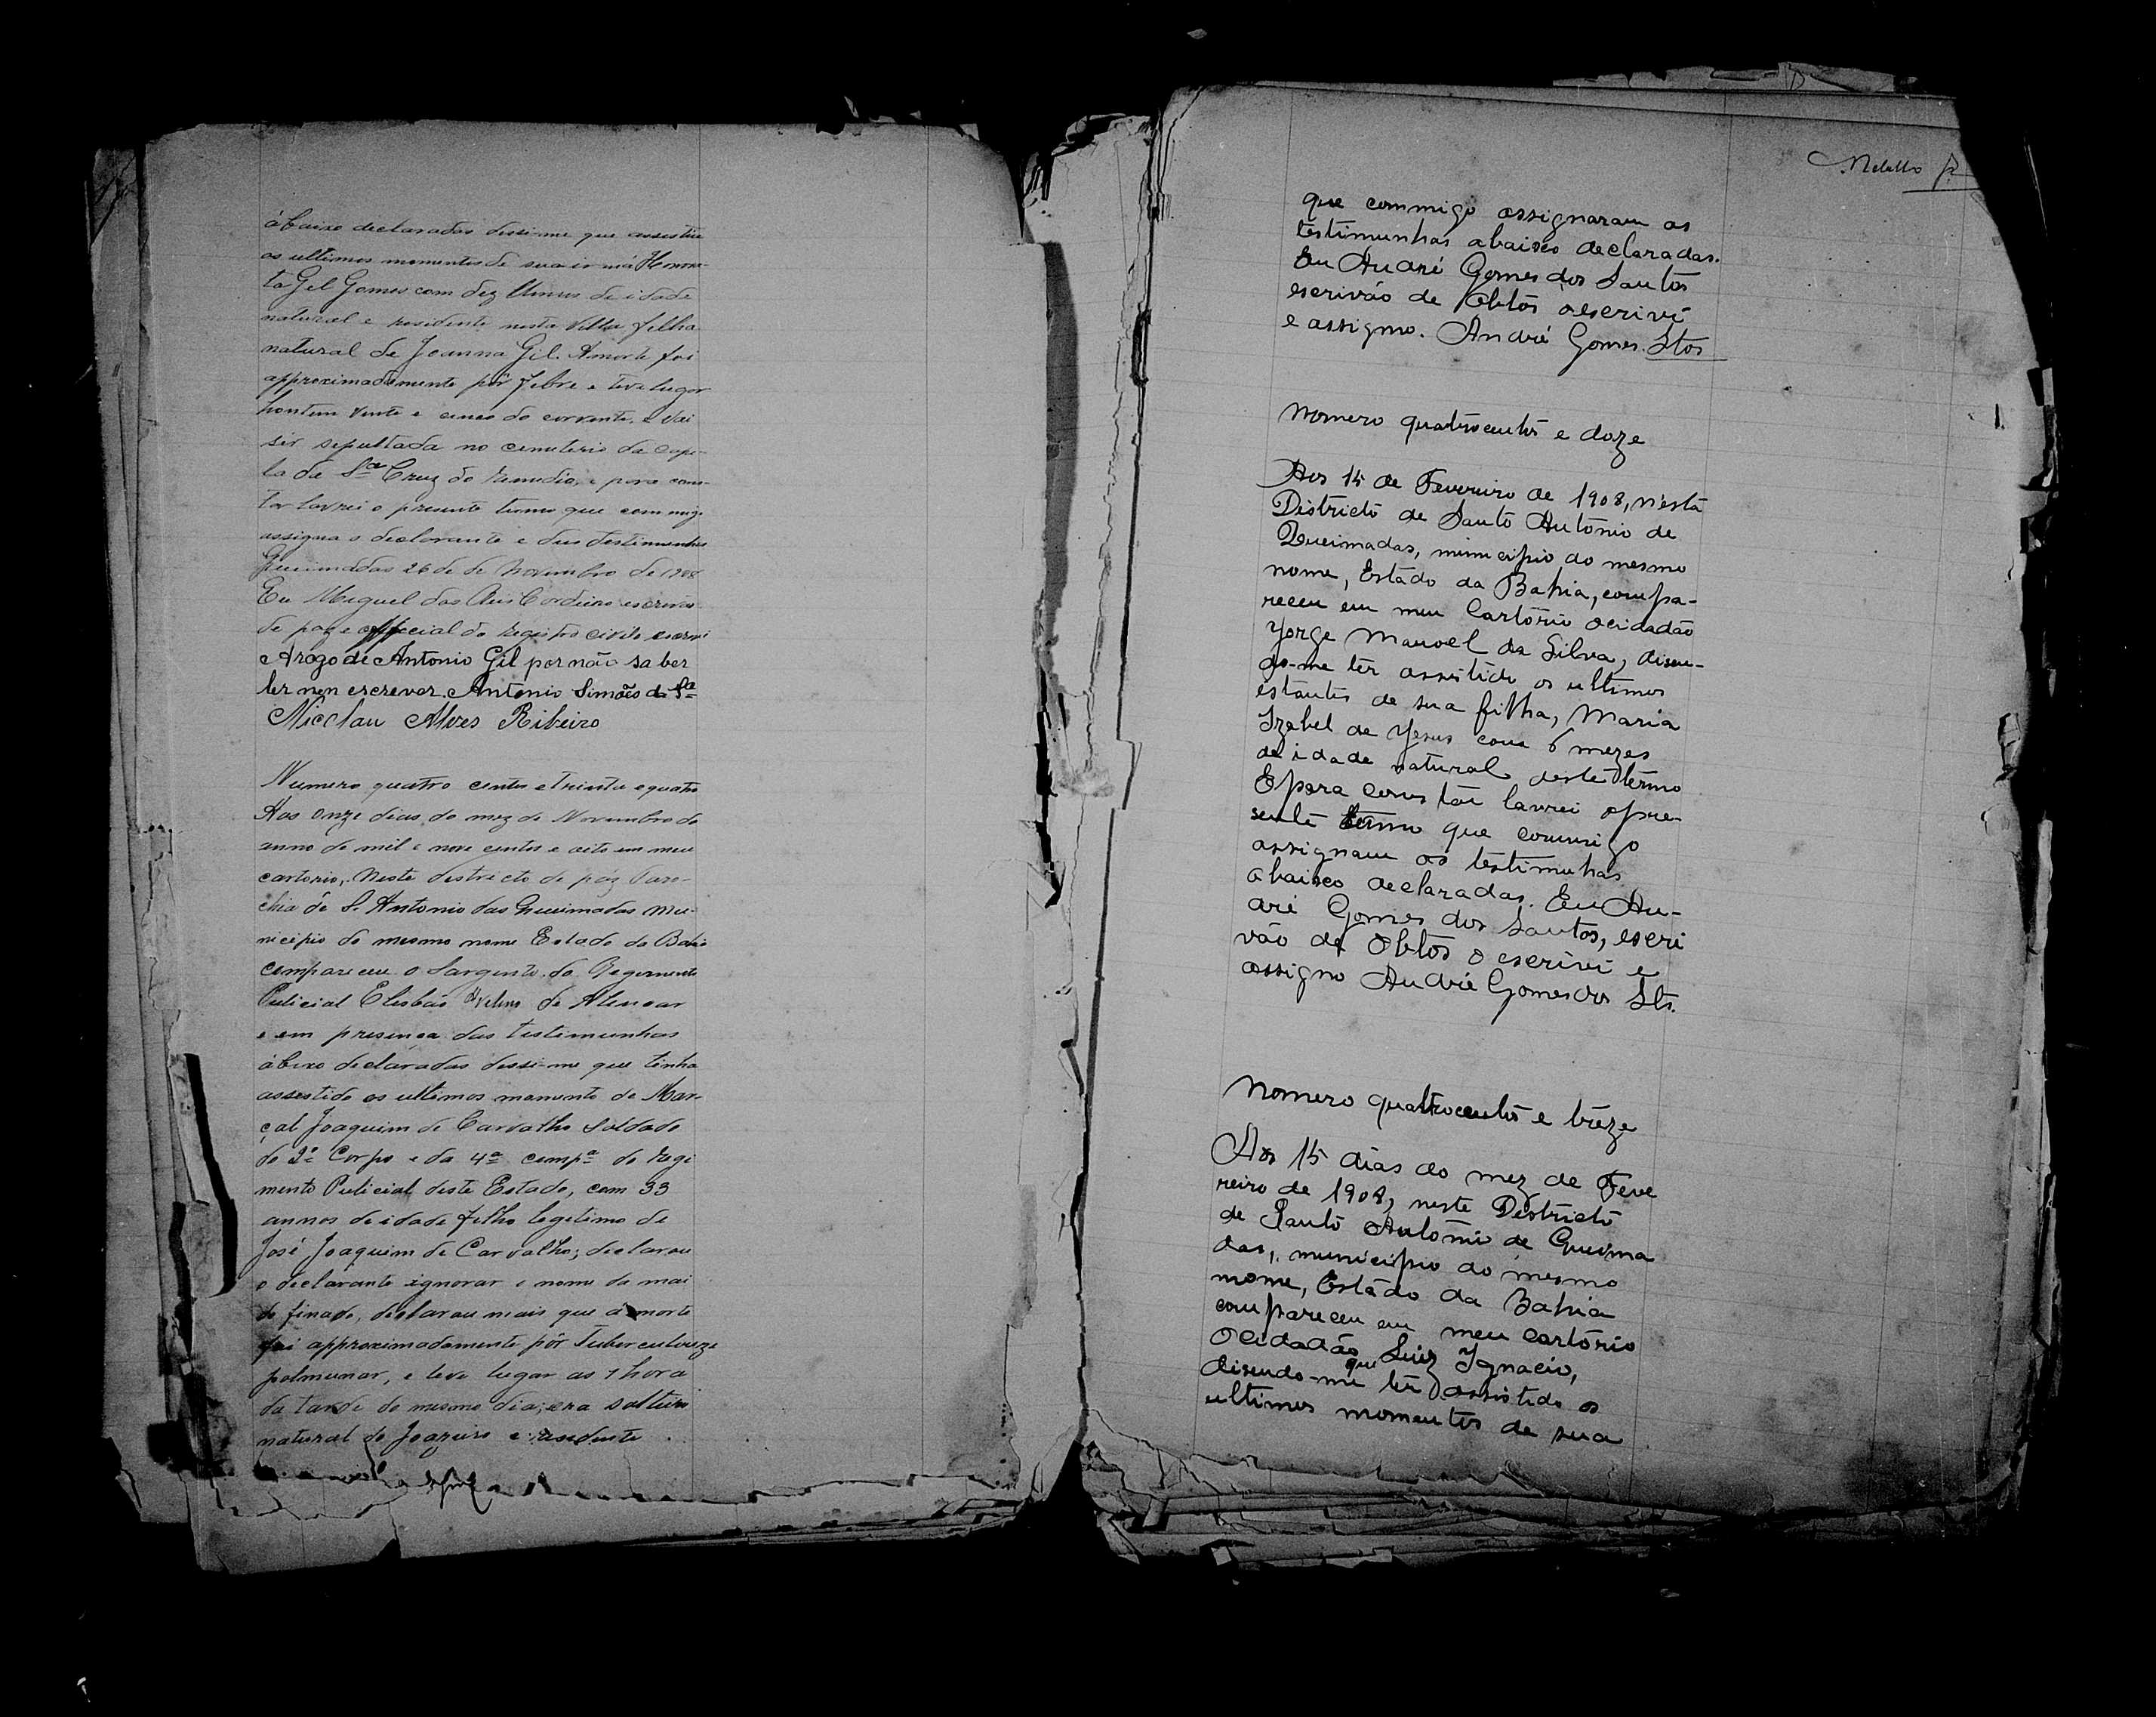 ábaixo declaradas dessi-me que assestiu
os ultimos momentos de sua irmá Honora-
ta Gil Gomes com dez annos de idade
natural e residente nesta Villa filha
natural de Joanna Gil. A morte foi
approximadamente pôr febre e teve lugar
hontem vinte e cinco do corrente, e vai
ser sepultada no cemeterio da cape-
la da Sta Cruz do Remedio, e para cons-
tar lavrei o presente termo que com migo
assigna o declarante e duas testimunhas
Queimadas 26 de de Novembro de 1908
Eu Miguel dos Reis Cordeiro escrivão
de paz e official do registro civil o escrevi
Arogo de Antonio Gil por não saber
ler nen escrever. Antonio Simões da Sa
Nicolau Alves Ribeiro
Numero quatro centos e trinta e quatro
Aos onze dias do mez de Novembro do
anno de mil e nove centos e oito em meu
cartorio, neste destrecto de paz Paro-
chia de S. Antonio das Queimadas Mu-
nicipio do mesmo nome Estado da Bahia
compareceu o Sargento do Regemento
Pulicial Elesbão Avelino de Alencar
e em presença das testimunhas
ábixo declaradas dessi-me que tinha
assestido os ultimos momento de Mar-
çal Joaquim de Carvalho Soldado
do 2º Corpo e da 4ª compª do Regi
mento Pulicial deste Estado, com 33
annos de idade filho legitimo de
José Joaquim de Carvalho; declarou
o declarante ignorar o nome da mai
do finado, declarou mais que á morte
foi approximadamente pôr Tuberculouze
polmunar, e teve lugar as 1 hora
da tarde do mesmo dia; era solteiro
natural do Joazeiro e residente
Mebello Jr
que commigo assignaram as
testimunhas abaixo declaradas.
Eu André Gomes dos Santos
escrivão de Obitos o escrivi
e assigno. André Gomes. Stos
Nomero quatrocentos e doze
Aos 15 de Fevereiro de 1908, n'esta
Districto de Santo Antonio de
Queimadas, municipio do mesmo
nome, Estado da Bahia, compa-
receu em meu Cartorio o cidadão
Yorge Manoel da Silva, disen-
do-me ter assistido os ultimos
estantes de sua filha, Maria
Izabel de Yesus com 6 mezes
de idade natural deste termo
E para constar lavrei o pre-
sente termo que commigo
assignam as testimuhas
abaixo declaradas. Eu An-
dré Gomes dos Santos, escri
vão de Obitos o escrivi e
assigno André Gomes dos Sts.
Nomero quatrocentos e treze
Aos 15 dias do mez de Feve
reiro de 1908, neste Districto
de Santo Antonio de Queima
das, municipio do mesmo
nome, Estado da Bahia
compareceu em meu cartorio
o cidadão Luiz Ygnacio,
disendo-me que ter assistido os
ultimos momentos de sua